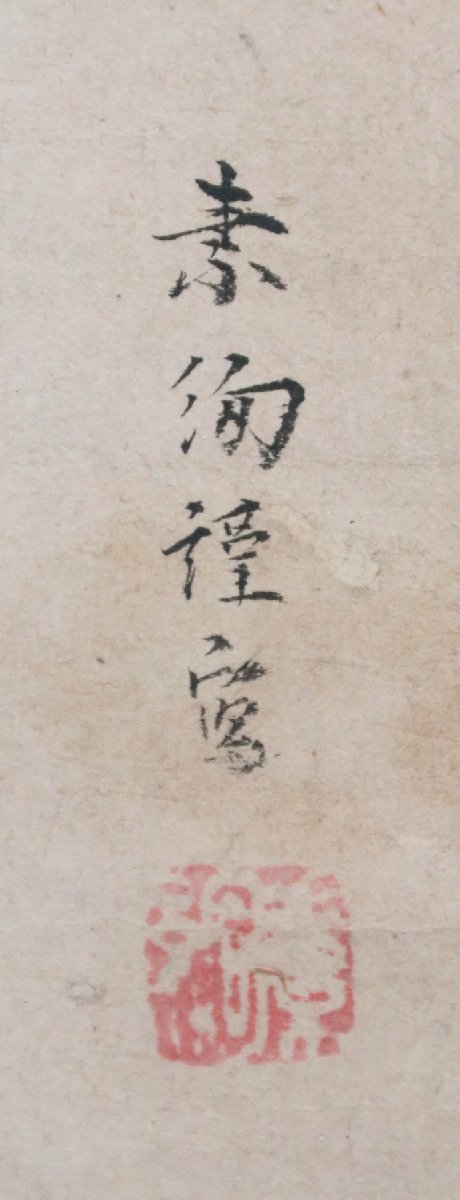 素絢謹寫